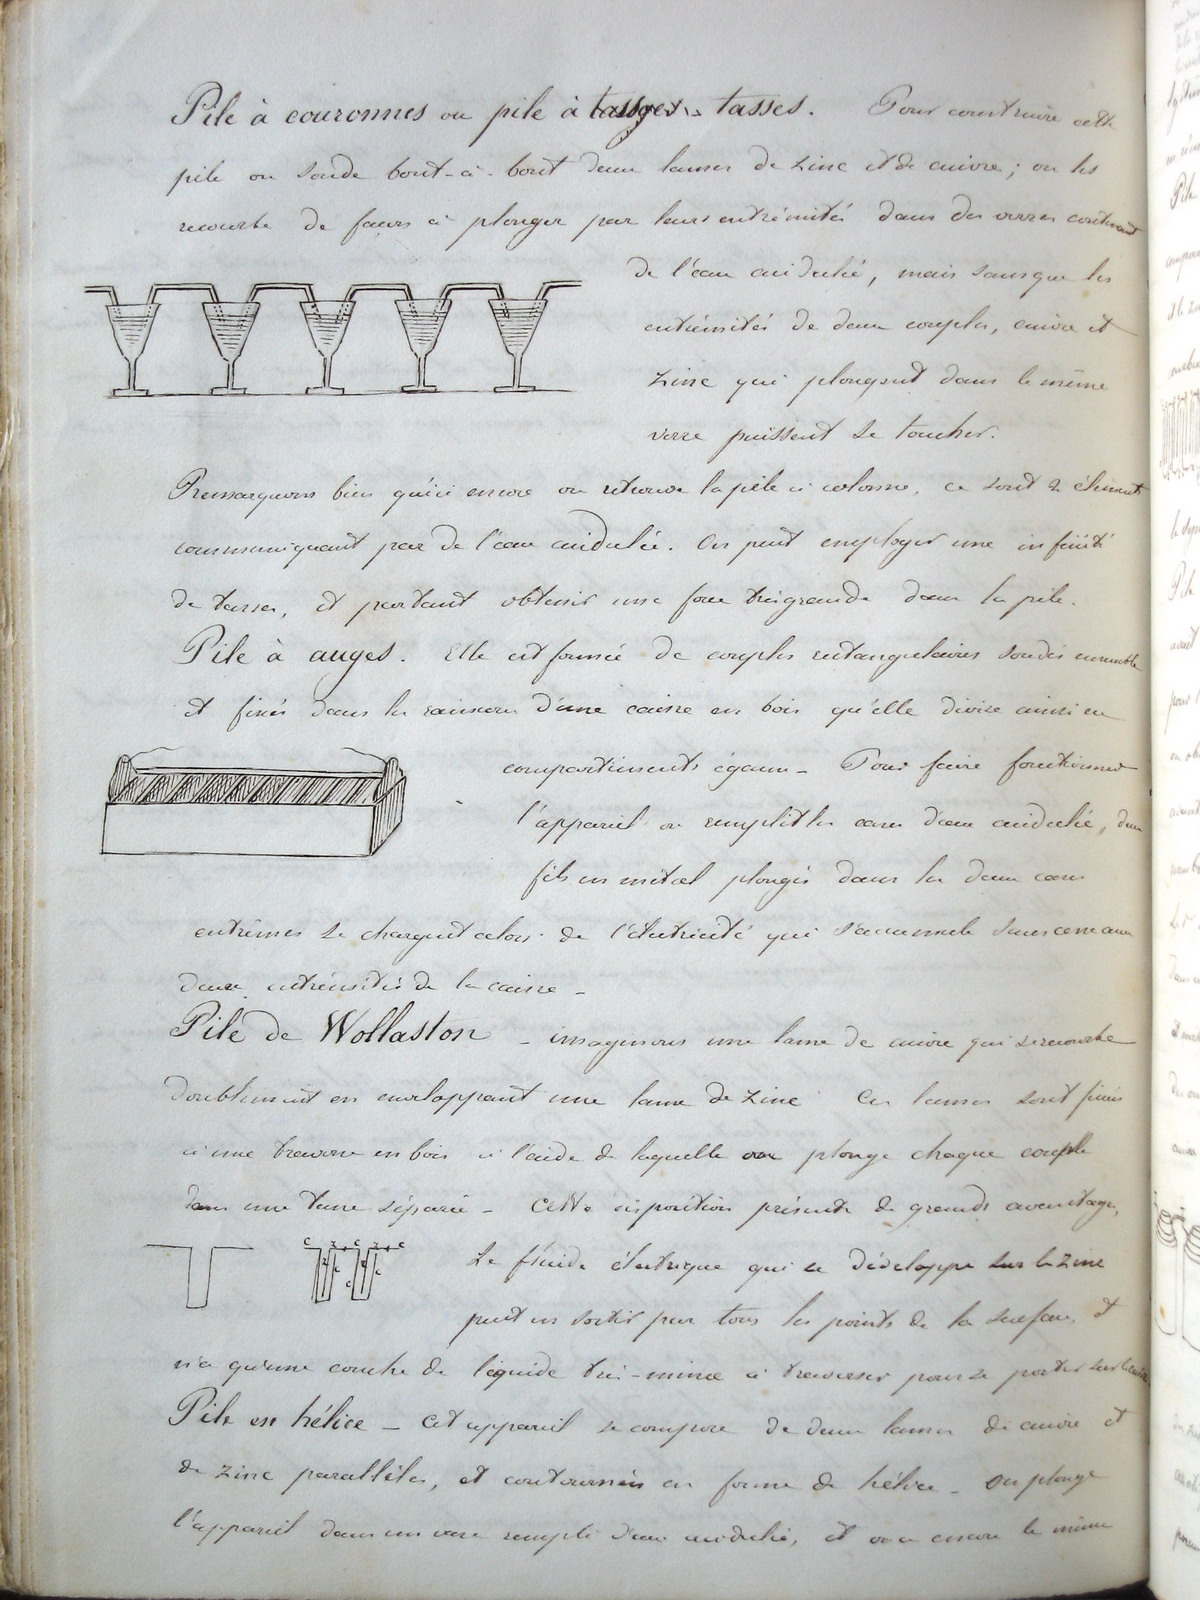 Pile à couronnes ou pile à tasses. Pour construire cette
pile on soude bout-à-bout deux lames de zinc et de cuivre ; on les
recourbe de façon à plonger par leurs extrémités dans des verres contenant
de l'eau acidulée, mais sans que les
extrémités de deux couples, cuivre et
zinc qui plongent dans le même
verre puissent se toucher.
Remarquons bien qu'ici encore on retrouve la pile à colonne, ce sont élements
communiquant par de l'eau acidulée. On peut employer une infinité
de tasses, et partant obtenir une force très grande dans la pile.
Pile à auges. Elle est formée de couples rectangulaires soudés ensemble
et fixés dans les rainures d'une caisse en bois qu'elle divise ainsi en
compartiments égaux - Pour faire fonctionner
l'appareil on remplit les cases d'eau acidulée, deux
fils en métal plongés dans les deux cases
extrêmes se chargent alors de l'électricité qui s'accumule sans cesse aux
deux extrémités de la caisse -
Pile de Wollaston - imaginons une lame de cuivre qui se recourbe
doublement en enveloppant une lame de zinc Ces lames sont fixées
à une traverse en bois à l'aide de laquelle on plonge chaque couple
dans une séparée - Cette disposition présente de grands avantages,
C Z C Z C
Le fluide électrique qui se développe sur le zinc
peut en sortir par tous les points de la surface, et
n'a qu'une couche de liquide très-mince à traverser pour se porter sur le cuivre
Pile en hélice - Cet appareil se compose de deux lames de cuivre et
de zinc parallèles, et contournées en forme de hélice - On plonge
l'appareil dans un vase rempli d'eau acidulée, et on a encore le même